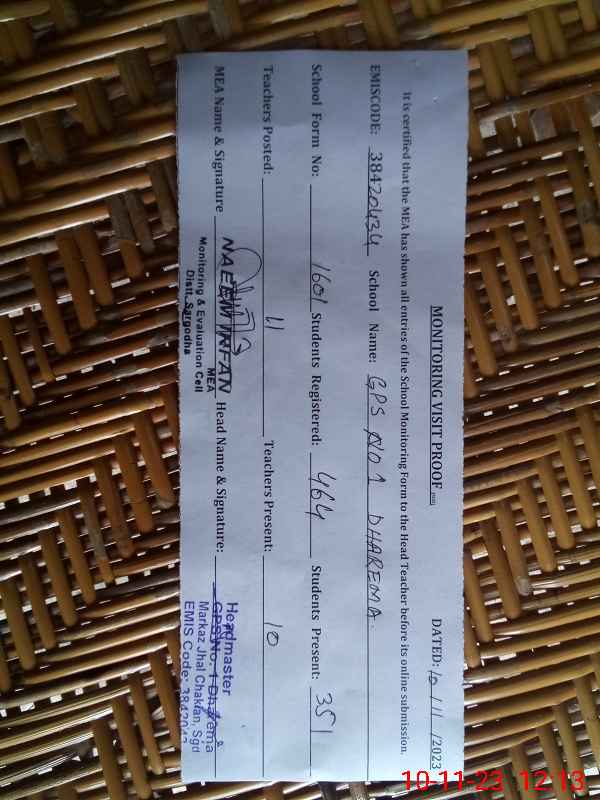 MONITORING VISIT PROOF DATED: 10/11/2023
It is certified that the MEA has shown all entries of the School Monitoring Form to the Head Teacher before its online submission.
EMISCODE: 38420434 School Name: GPS NO 1 DHAREMA.
School Form No: 1601 Students Registered: 464 Students Present: 351
Teachers Posted: 11 Teachers Present: 10
MEA Name & Signature NAEEM IRFAN Head Name & Signature:
MEA
Monitoring & Evaluation Cell
Distt. Sargodha
Headmaster
GPS No. 1 Dharema
Markaz Jhal Chakian, Sgd
EMIS Code: 3842043
10-11-23 12:13